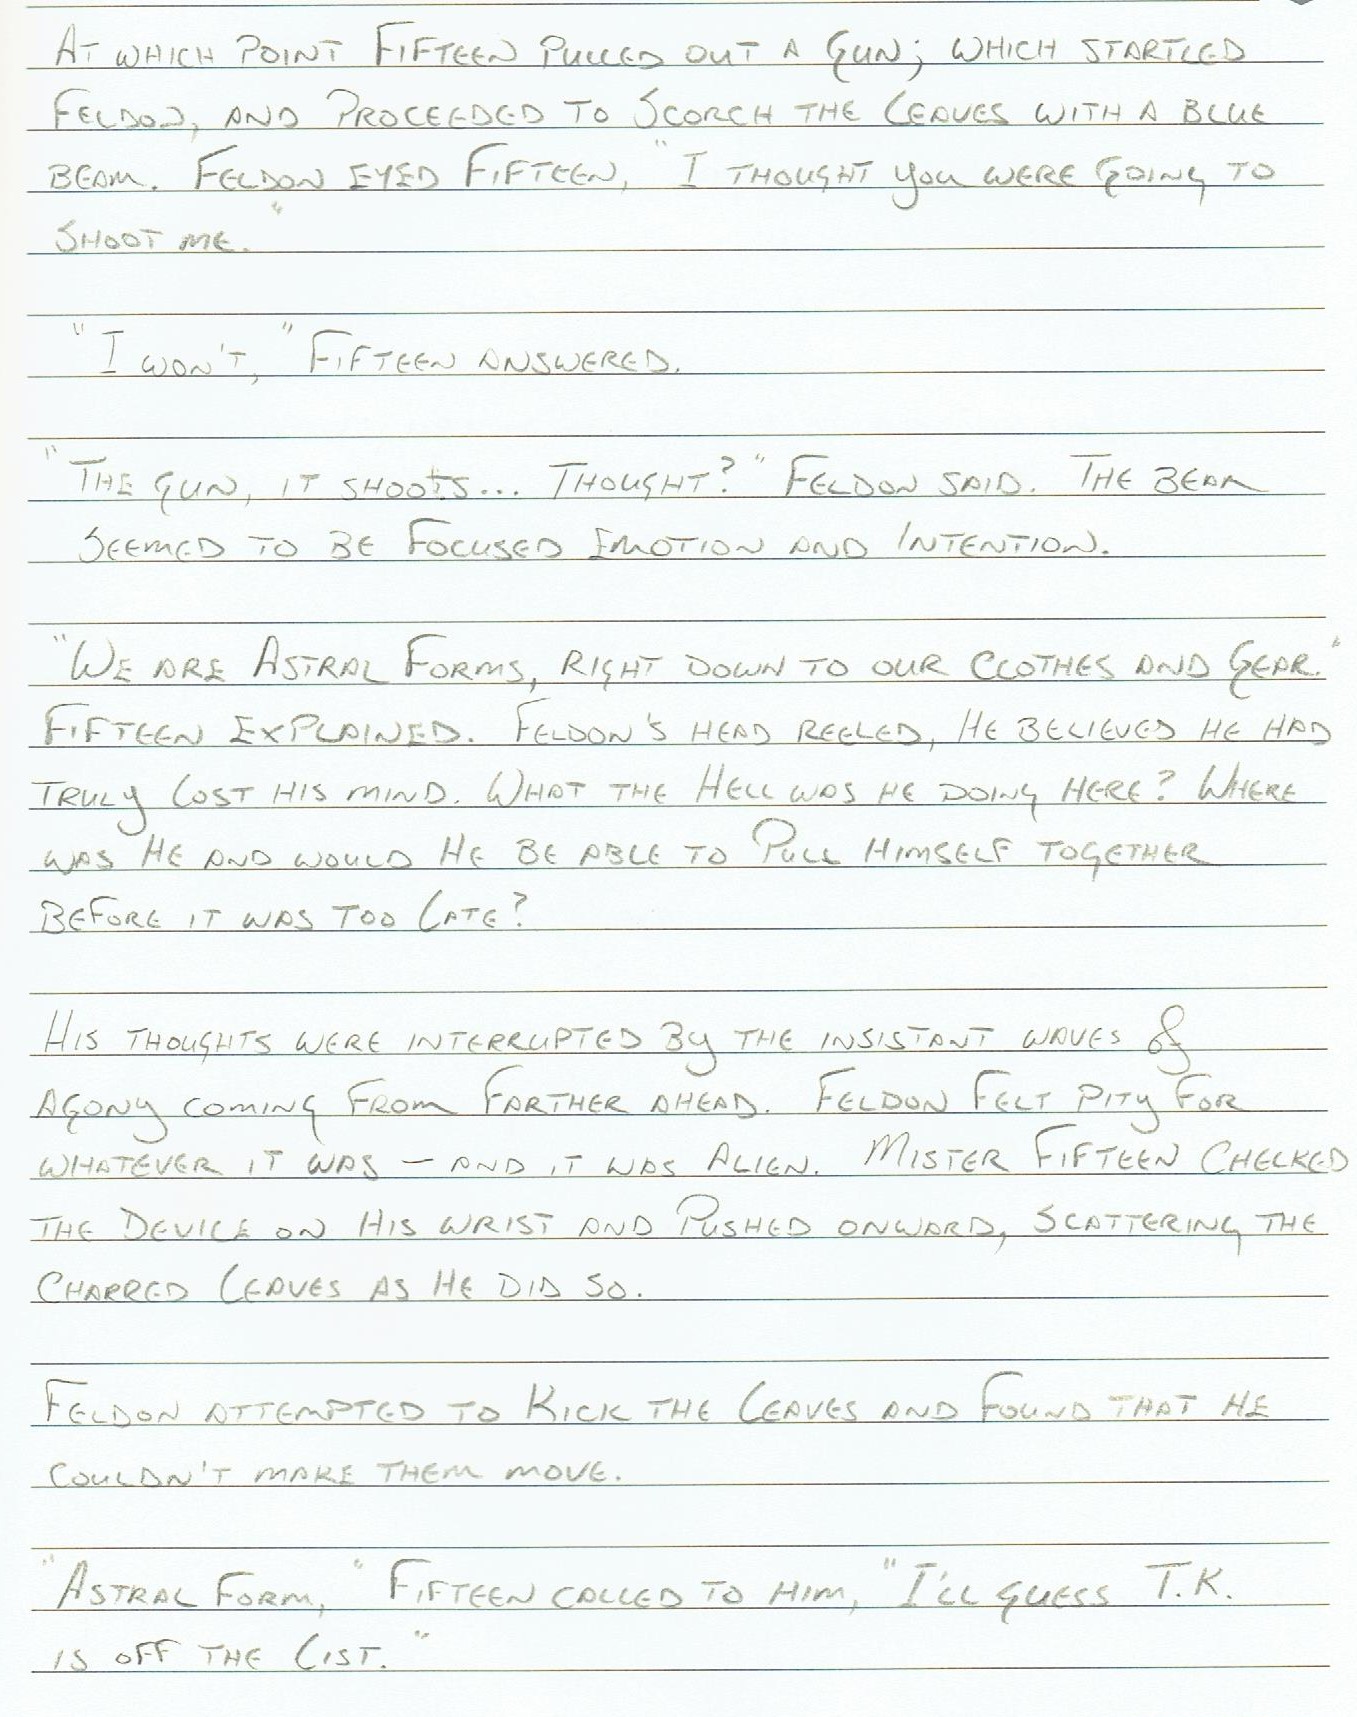 At which point Fifteen pulled out a gun; which startled
Feldon, and proceeded to scorch the leaves with a blue
beam. Feldon eyed Fifteen, "I thought you were going to
shoot me."
"I won't," Fifteen answered.
"The gun, it shoots... thought?" Feldon said. The beam
seemed to be focused emotion and intention.
"We are Astral Forms, right down to our clothes and gear."
Fifteen explained. Feldon's head reeled, he believed he had
truly lost his mind. What the hell was he doing here? Where
was he and would he be able to pull himself together
before it was too late?
His thoughts were interrupted by the insistant waves of
agony coming from farther ahead. Feldon felt pity for
whatever it was – and it was alien. Mister Fifteen checked
the device on his wrist and pushed onward, scattering the
charred leaves as he did so.
Feldon attempted to kick the leaves and found that he
couldn't make them move.
"Astral Form," Fifteen called to him, "I'll guess T.K.
is off the list."